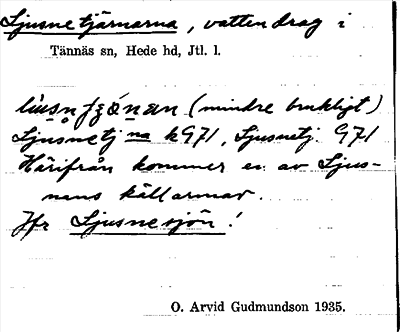 Ljusnetjärnarna, vattendrag i
Tännäs sn, Hede hd, Jtl. l.
(mindre brukligt)
Ljusnetj na kG71, Ljusnetj. G71
Härifrån kommer en av Ljus-
nans källarmar.
Jfr Ljusnesjön!
O. Arvid Gudmundson 1935.